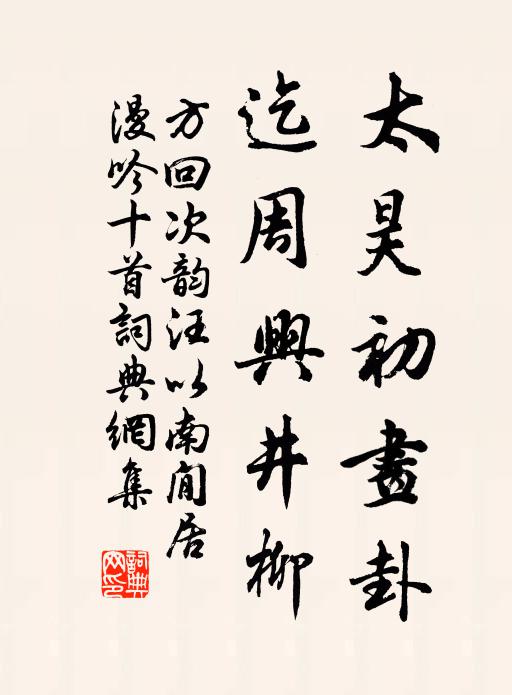 太昊初畫卦
迄周興井柳
方回次韵汪以南閒居
漫吟十首詞典網集
詞典
网印